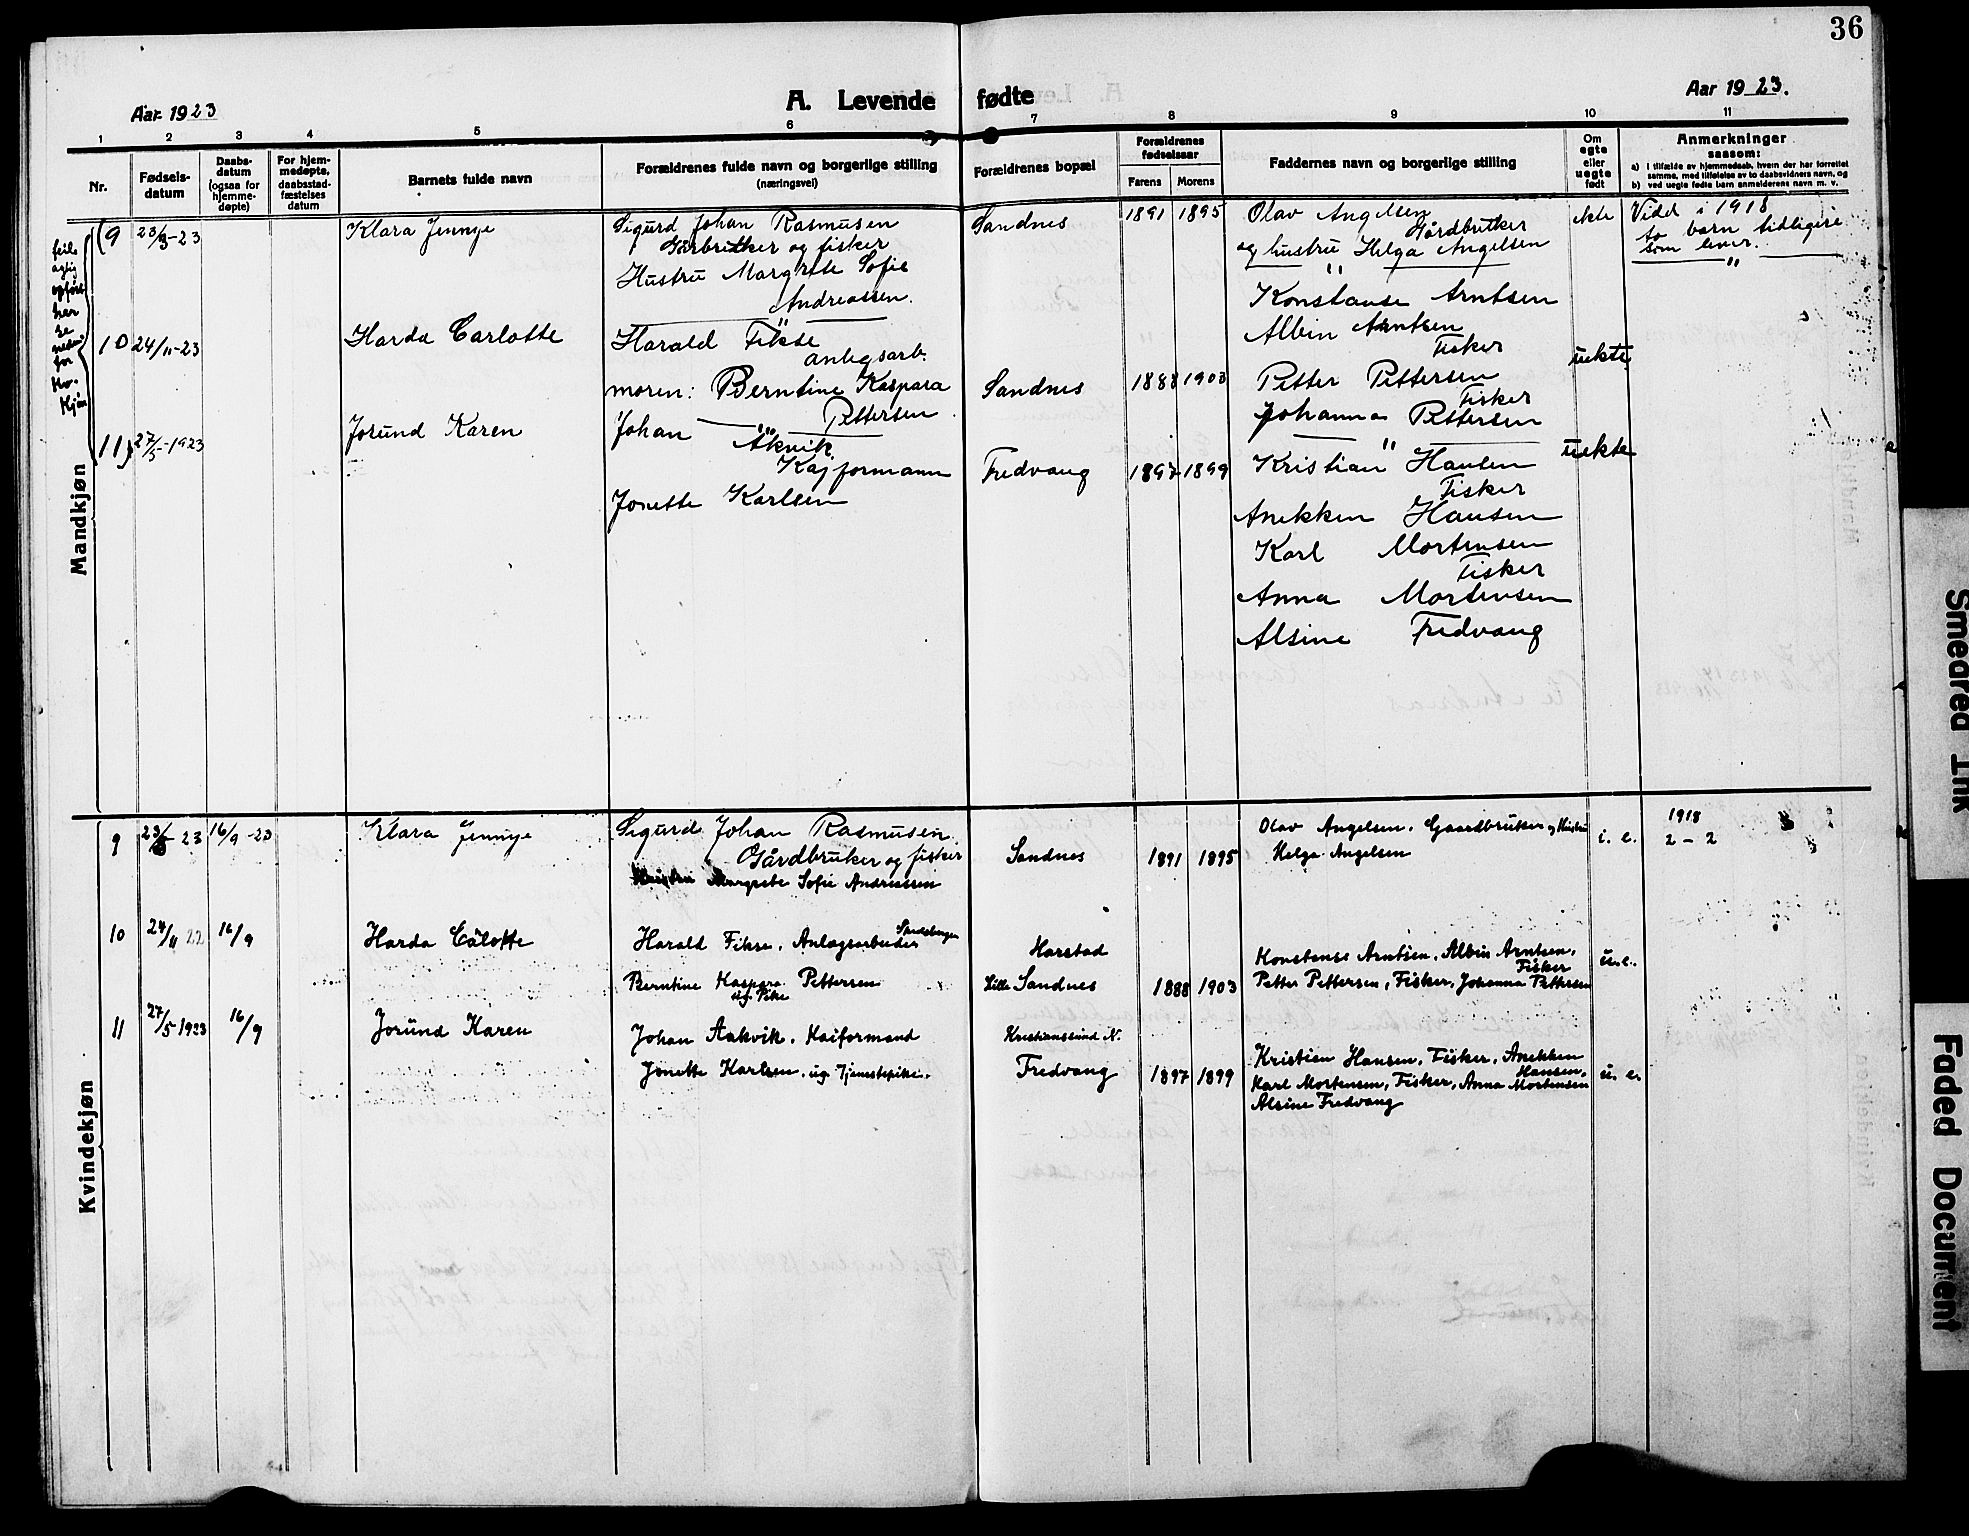 36
Aar 1923
A. Levende fødte
Aar 1923.
1 2 3 4 5 6 7 8 9 10 11
Nr.
Fødsels-
datum
Daabs-
datum
(ogsaa for
hjemme-
døpte)
For hjem-
medøpte,
daabsstad-
fæstelses
datum
Barnets fulde navn
Forældrenes fulde navn og borgerlige stilling
(næringsvei)
Forældrenes bopæl
Forældrenes
fødselsaar
Farens Morens
Faddernes navn og borgerlige stilling
Om
egte
eller
uegte
født
Anmerkninger
saasom:
a) I tilfælde av hjemmedaab, hvem der har forrettet
samme, med tilføielse av to daabsvidners navn, og
b) ved uegte fødte barn anmelderens navn m. v.
Mandkjøn
feil-
agtig
opført
her
se
nedenfor
Kv.
Kjøn
9 23/3-23 Klara Jennye
Sigurd Johan Rasmusen
Gårbruker og fisker
Hustru Margrete Sofie
Andreassen.
Sandnes 1891 1895
Olav Angelsen
Gårdbruker
og hustru Helga Angelsen
ekte
Viel i 1918
to barn tidligere
som lever.
"
10 24/11-23 Harda Carlotte
Harald Fikse
anlegsarb.
moren: Berntine Kaspara
Pettersen
Sandnes 1888 1903
Konstanse Arntsen
Albin Arntsen
Fisker
Petter Pettersen
Fisker
Johanna Pettersen
uekte
11 27/5-1923 Jorund Karen
Johan Åkvik
Kajformann
Jonette Karlsen
Fredvang 1897 1899
Kristian Hansen
Fisker
Anekken Hansen
Karl Mortensen
Fisker
Anna Mortensen
Alsine Fredvang
uekte
Kvindekjøn
9 23/3 23 16/9-23 Klara Jennye
Sigurd Johan Rasmusen
Gårdbruker og fisker
Hustru Margrete Sofie Andreassen
Sandnes 1891 1895
Olav Angelsen. Gaardbruker og Hustru
Helga Angelsen
i. e.
1918
2 – 2
10 24/11 22 16/9 Harda Calotte
Harald Fikse. Anlægsarbeider
Berntine Kaspara Pettersen
ug. Pike
Harstad
Lille Sandnes 1888 1903
Konstanse Arntsen. Albin Arntsen,
Fisker
Petter Pettersen, Fisker, Johanna Pettersen
u.e.
11 27/5 1923 16/9 Jorund Karen
Johan Aakvik. Kaiformand
Jonette Karlsen. ug. Tjenestepike.
Kristianssund N.
Fredvang 1897 1899
Kristian Hansen, Fisker. Anekken
Hansen.
Karl Mortensen, Fisker, Anna Mortensen
Alsine Fredvang
u. e.
Smeared Ink
Faded Document